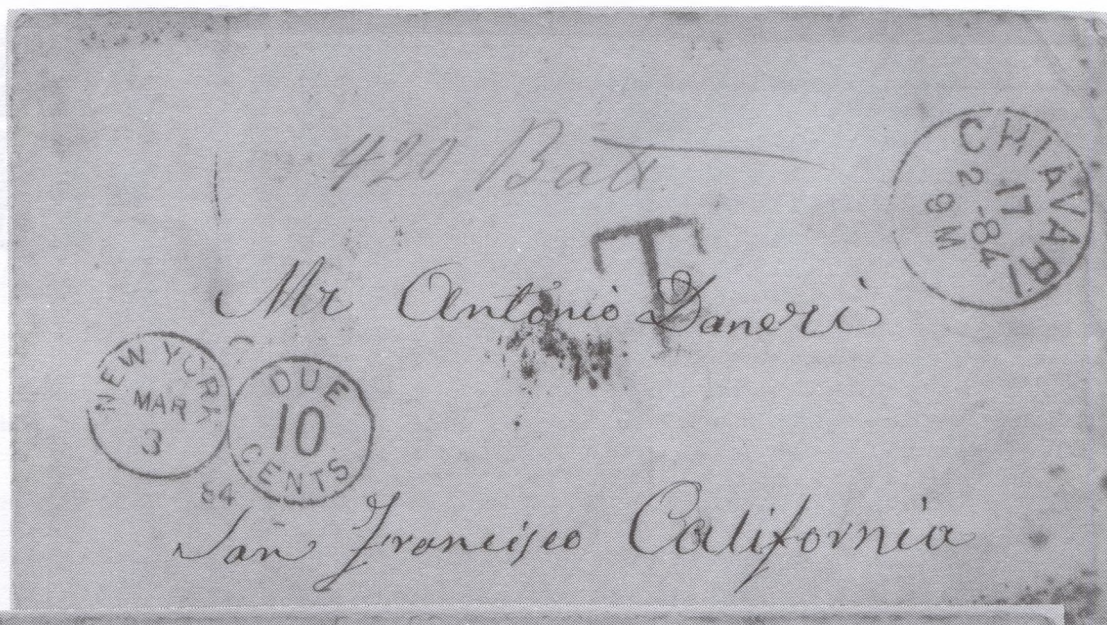 420 Batt
CHIAVARI
17
2 -84
9 M
T
Mr Antonio Daneri
NEW YORK
MAR
3
84
DUE
10
CENTS
San Francisco California